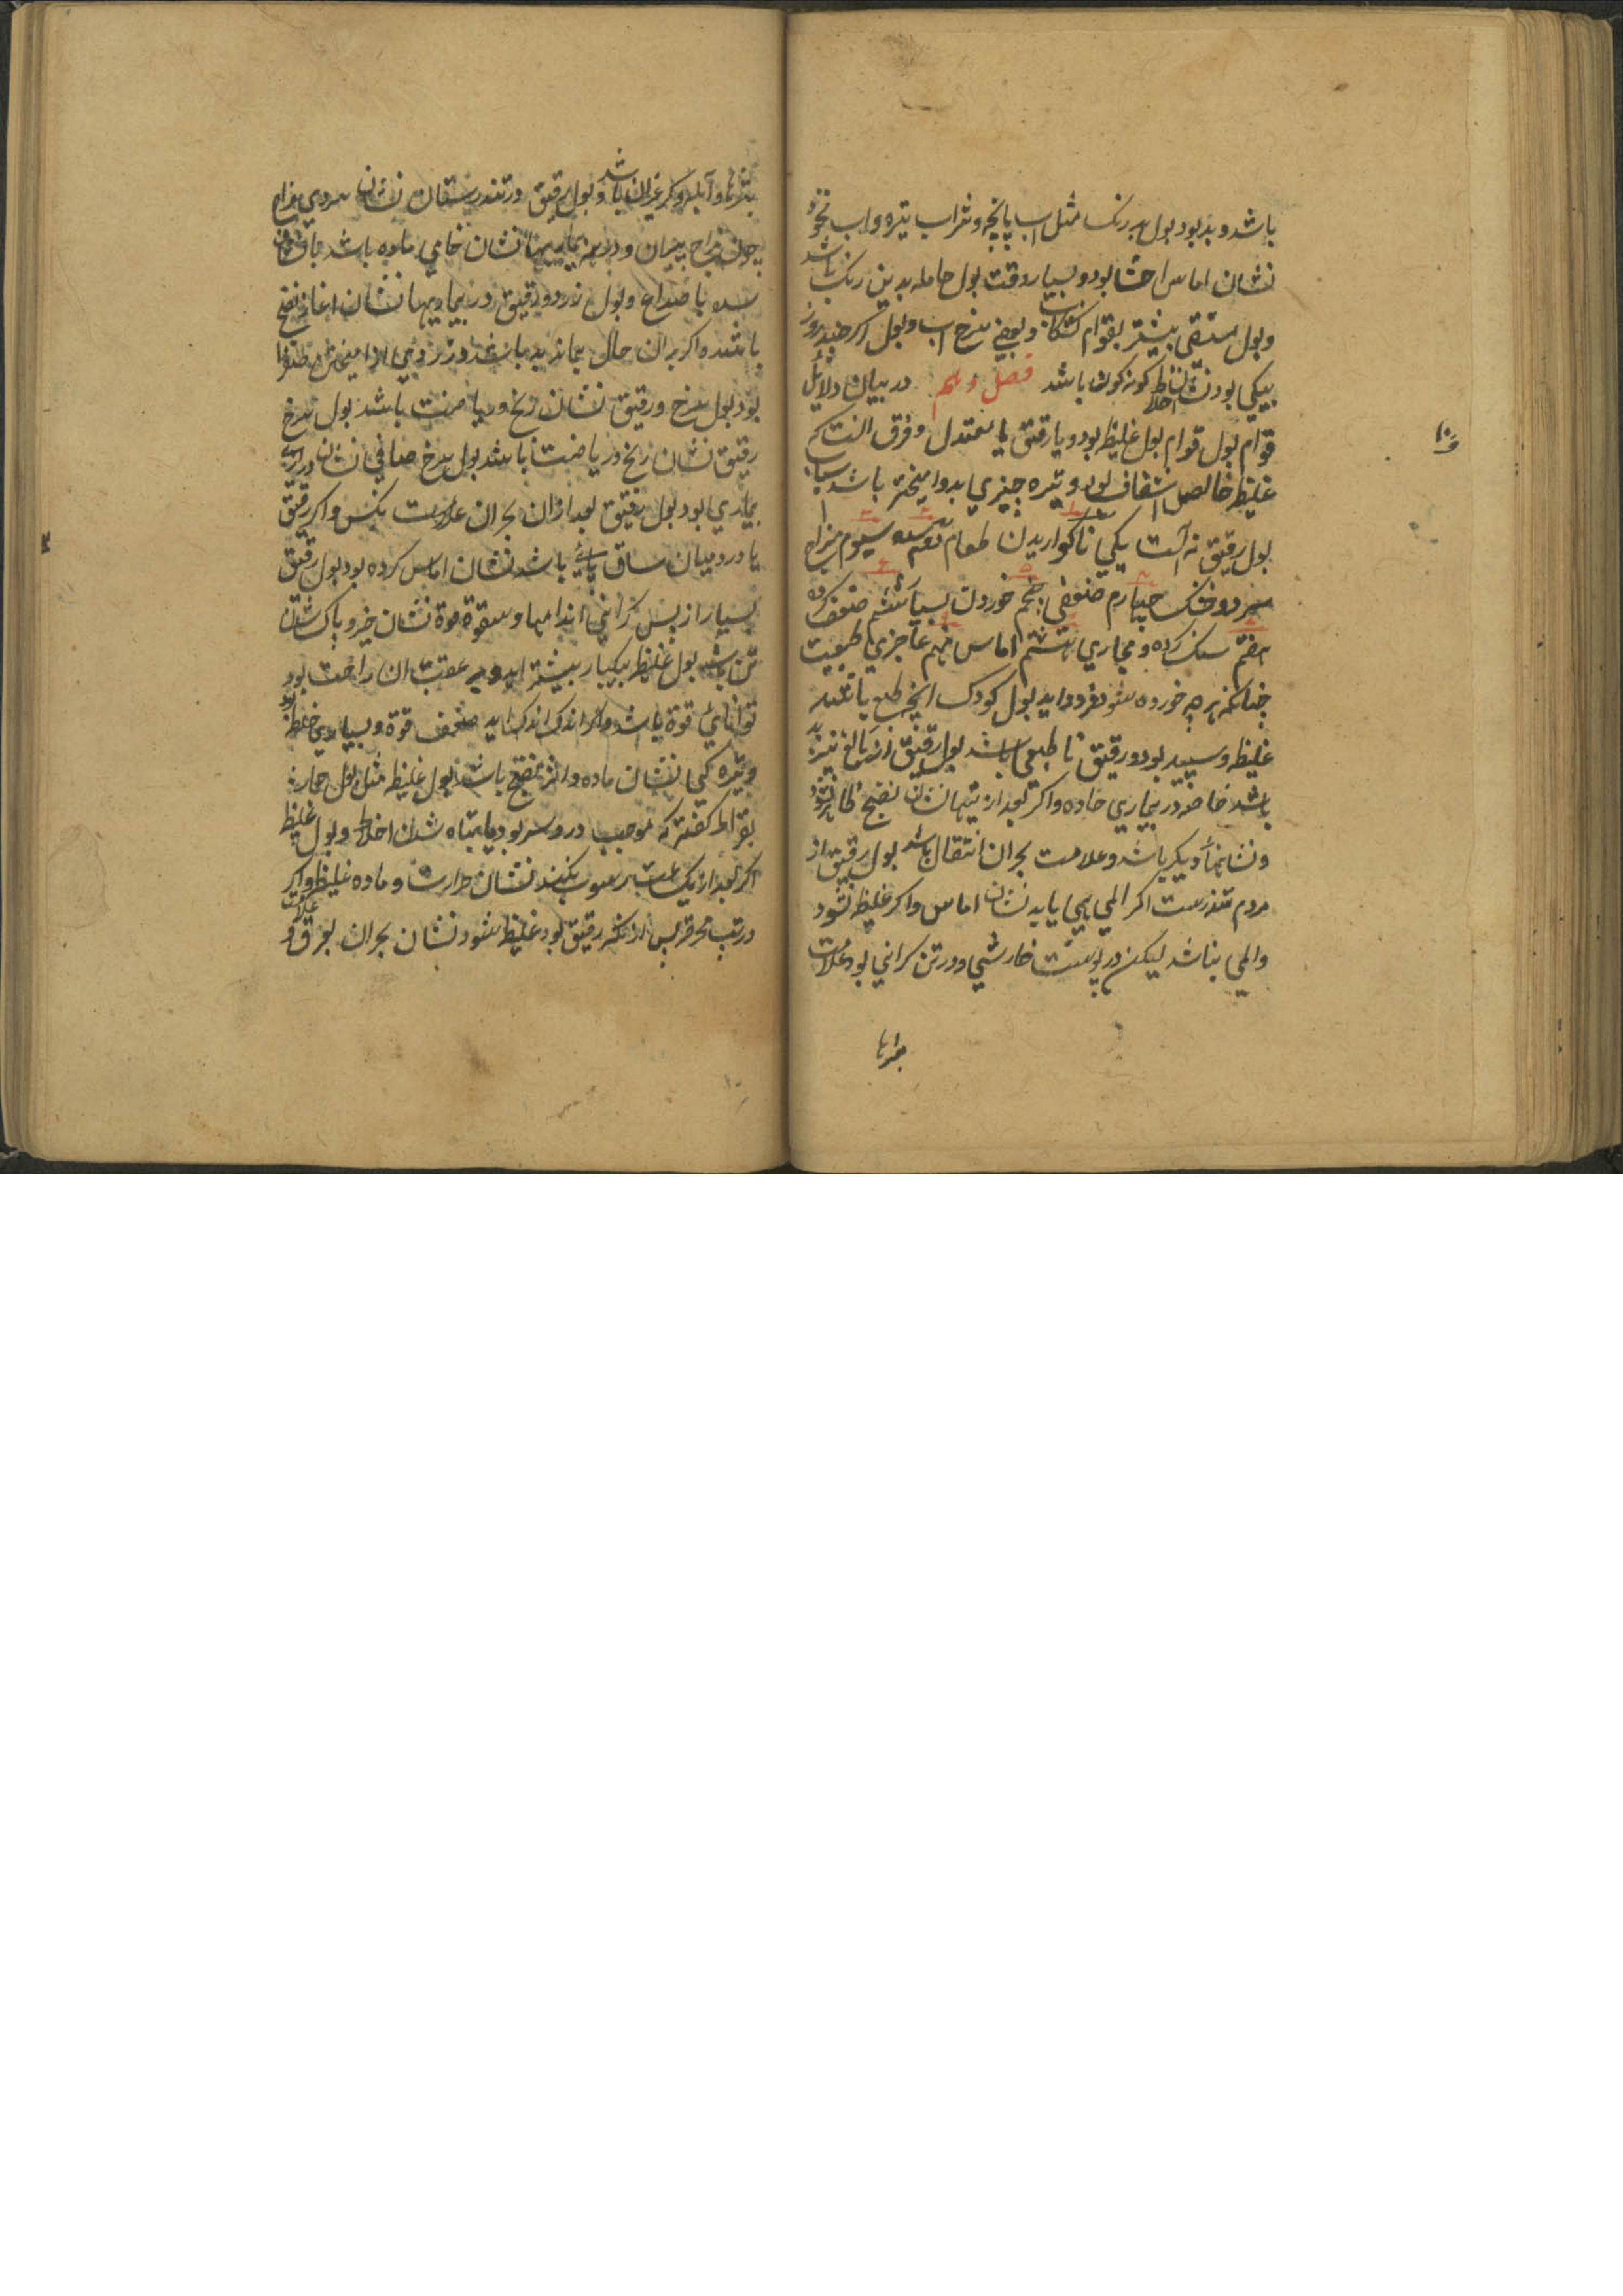 باشد و بد بود بول برنک مثل اب پاچه و شراب تیره و اب نخود
نشان اماس احشا بود و بسیار وقت بول حامله بدین رنک باشد
و بول مستقی بیشتر بقوام کشکاب و بعضی سرخ اب و بول اکر چند روز
بیکی بود نشان اخلاط کونه کون باشد فصل دهم در بیان دلائل
قوام بول قوام بول غلیظ بود و یا رقیق یا معتدل و فرق انست که
غلیظ خالص شفاف بود و تیره چیزی بدو امیخته باشد اسباب
بول رقیق نه است یکی ناکواریدن طعام دوم سده سیوم مزاج
سرد و خشک چهارم ضعیفی پنجم خوردن بسیار ششم ضعف کرده
هفتم سنک کرده و مجاری هشتم اماس نهم عاجزی طبیعت
چنانکه هر چه خورده شود فرود اید بول کودک انچه طبع باشد
غلیظ و سپید بود و رقیق نا طبعی باشد بول رقیق از بالغ نیز بد
باشد خاصه در بیماری حاده و اکر بعد از تبها نشان نضج ظاهر نشود
و نشانها دیکر باشد و علامت بحران انتقال باشد بول رقیق از
مردم تندرست اکر المی همی یابد نشان اماس و اکر غلیظ نشود
و المی نباشد لیکن در پوست خارشی و در تن کرانی بود علامت
بثرها
بثرها و آبله و کر غیران باشد و بول رقیق در تندرستان نشان سردی مزاج
چون مزاج پیران و در همه بیماریها نشان خامی ماده باشد یا نشان
سده با صداع و بول زرد و رقیق در بیماریها نشان اغاز نضج
باشد و اکر بران حال بماند بد باشد و زردیی از امیختن صفرا
بود بول سرخ و رقیق نشان رنج و ریاضت باشد بول سرخ
رقیق نشان رنج و ریاضت باشد بول سرخ صافی نشان درازی
بیماری بود بول رقیق بعد از ان بحران علامت نکس و اکر رقیق
یا درد میان ساق پای باشد نشان اماس کرده بود بول رقیق
بسیار از پس کرانی اندامها و سقوة قوة نشان خیر و پاک شدن
تن باشد بول غلیظ بیکبار بیشتر اید و بر عقب ان راحت بود
توانایی قوة باشد و اکر اندک اندک اید ضعف قوة و بسیاری خلط بود
و تیره کی نشان ماده و اثر نضج باشد بول غلیظ مثل بول حمار
بقراط کفته که موجب درد سر بود یا تباه شدن اخلاط و بول غلیظ
اکر بعد از یک ساعت رسوب نکند نشان حرارت و ماده غلیظ و اکر
در تب محرقه پس از انکه رقیق بود غلیظ شود نشان بحران بعرق و علامت